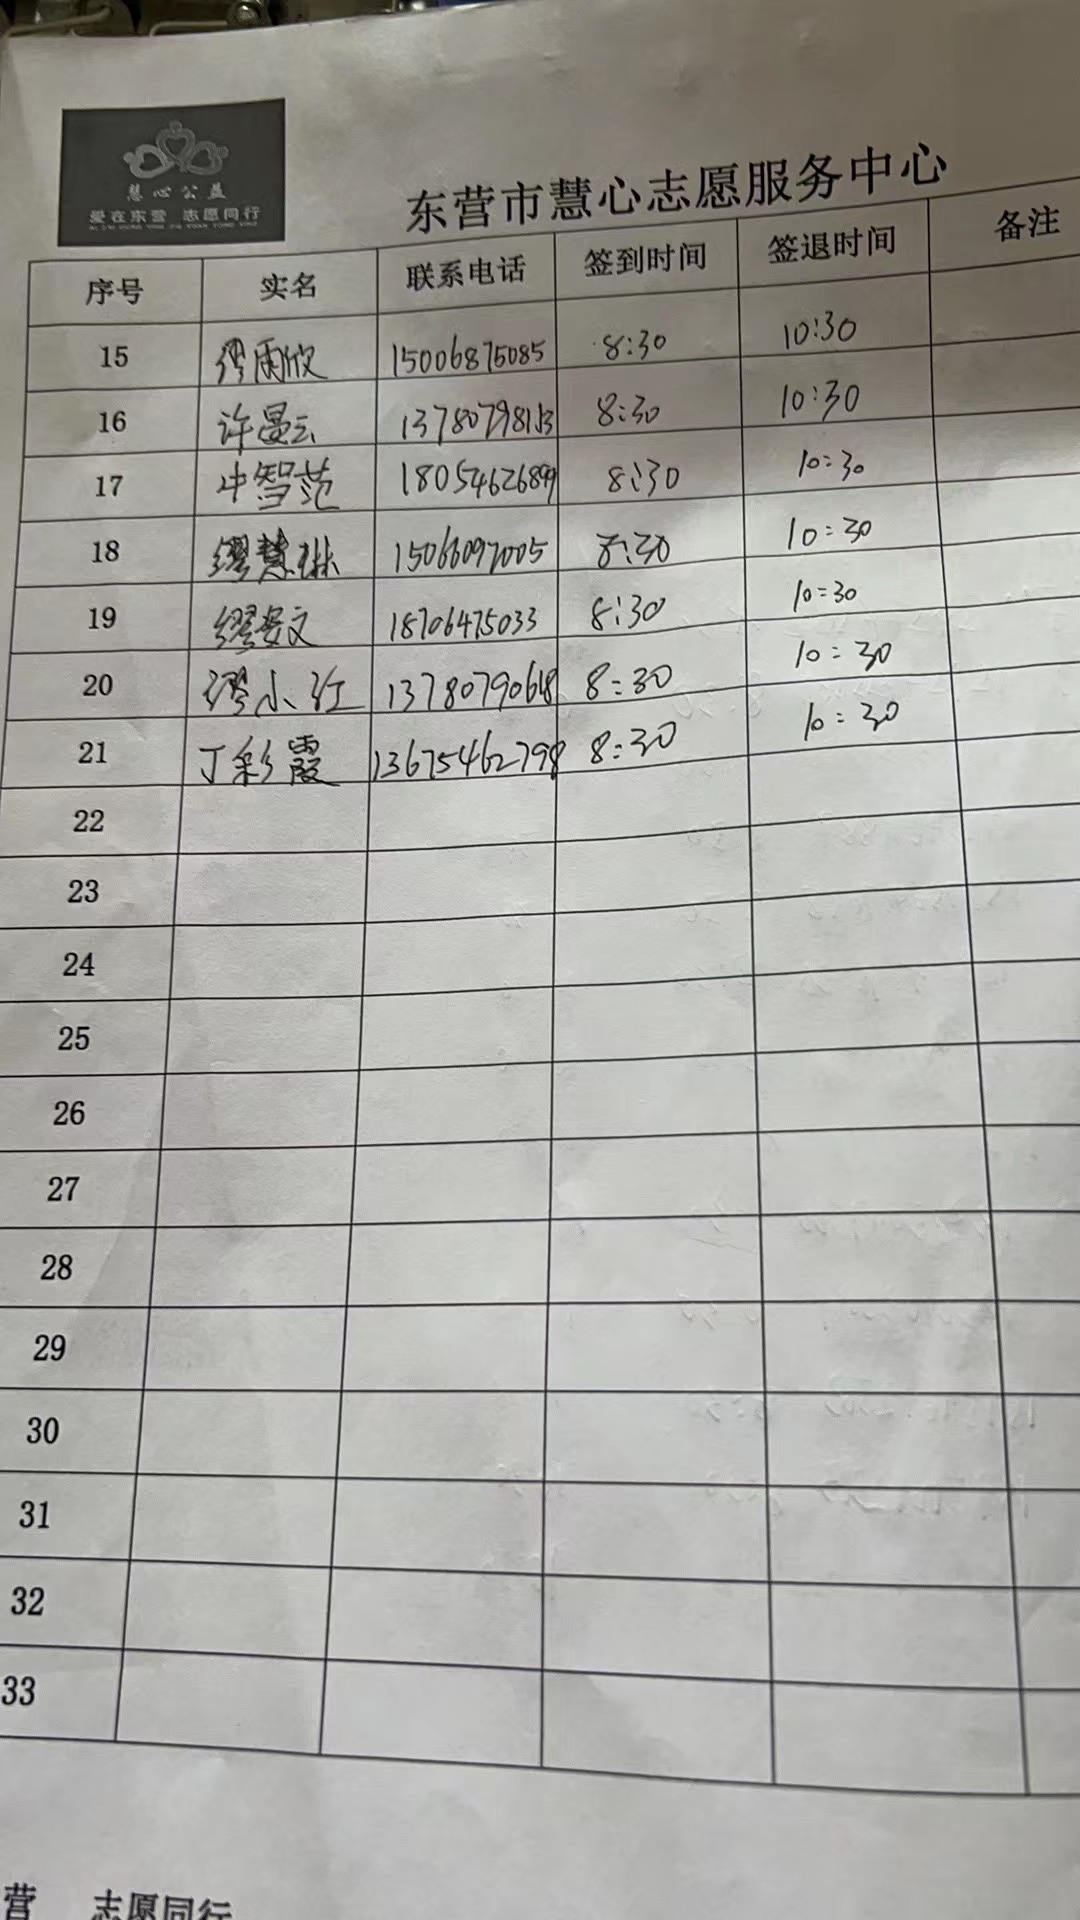 慧心公益
爱在东营 志愿同行
东营市慧心志愿服务中心
序号 实名 联系电话 签到时间 签退时间 备注
15 缪雨欣 15006875085 8:30 10:30
16 许曼云 13780798113 8:30 10:30
17 智范 18054626899 8:30 10:30
18 缪慧琳 15066097005 8:30 10:30
19 缪安文 18706475033 8:30 10:30
20 缪小红 13780790618 8:30 10:30
21 丁彩霞 13675462798 8:30 10:30
22
23
24
25
26
27
28
29
30
31
32
33
营 志愿同行